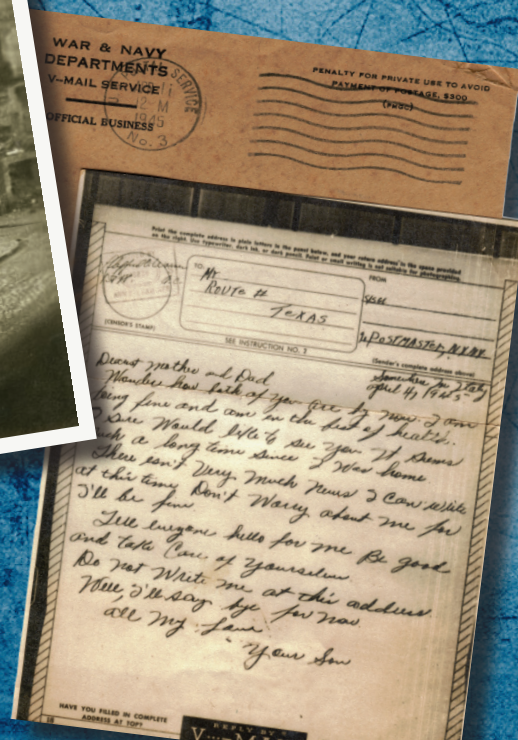 WAR & NAVY
DEPARTMENTS
V-MAIL SERVICE
OFFICIAL BUSINESS
SERVICE
12-M
1945
No. 3
PENALTY FOR PRIVATE USE TO AVOID
PAYMENT OF POSTAGE, $300
(PMGC)
Print the complete address in plain letters in the panel below, and your return address in the space provided
on the right. Use typewriter, dark ink, or dark pencil. Faint or small writing is not suitable for photographing.
TO:
Mr
ROUTE #
TEXAS
FROM
POSTMASTER, N.Y. N.Y.
(CENSOR'S STAMP)
SEE INSTRUCTION NO. 2
(Sender's complete address above)
Somewhere in Italy
April 4, 1945
Dearest Mother and Dad
Wonder how both of you are by now. I am
being fine and am in the best of health.
I sure would like to see you. It seems
such a long time since I was home
There isn't very much news I can write
at this time. Don't worry about me for
I'll be fine
Tell everyone hello for me Be good
and take care of yourselves.
Do not write me at this address.
Well, I'll say bye for now
all my love
Your Son
HAVE YOU FILLED IN COMPLETE
ADDRESS AT TOP?
REPLY BY
V···-MAIL